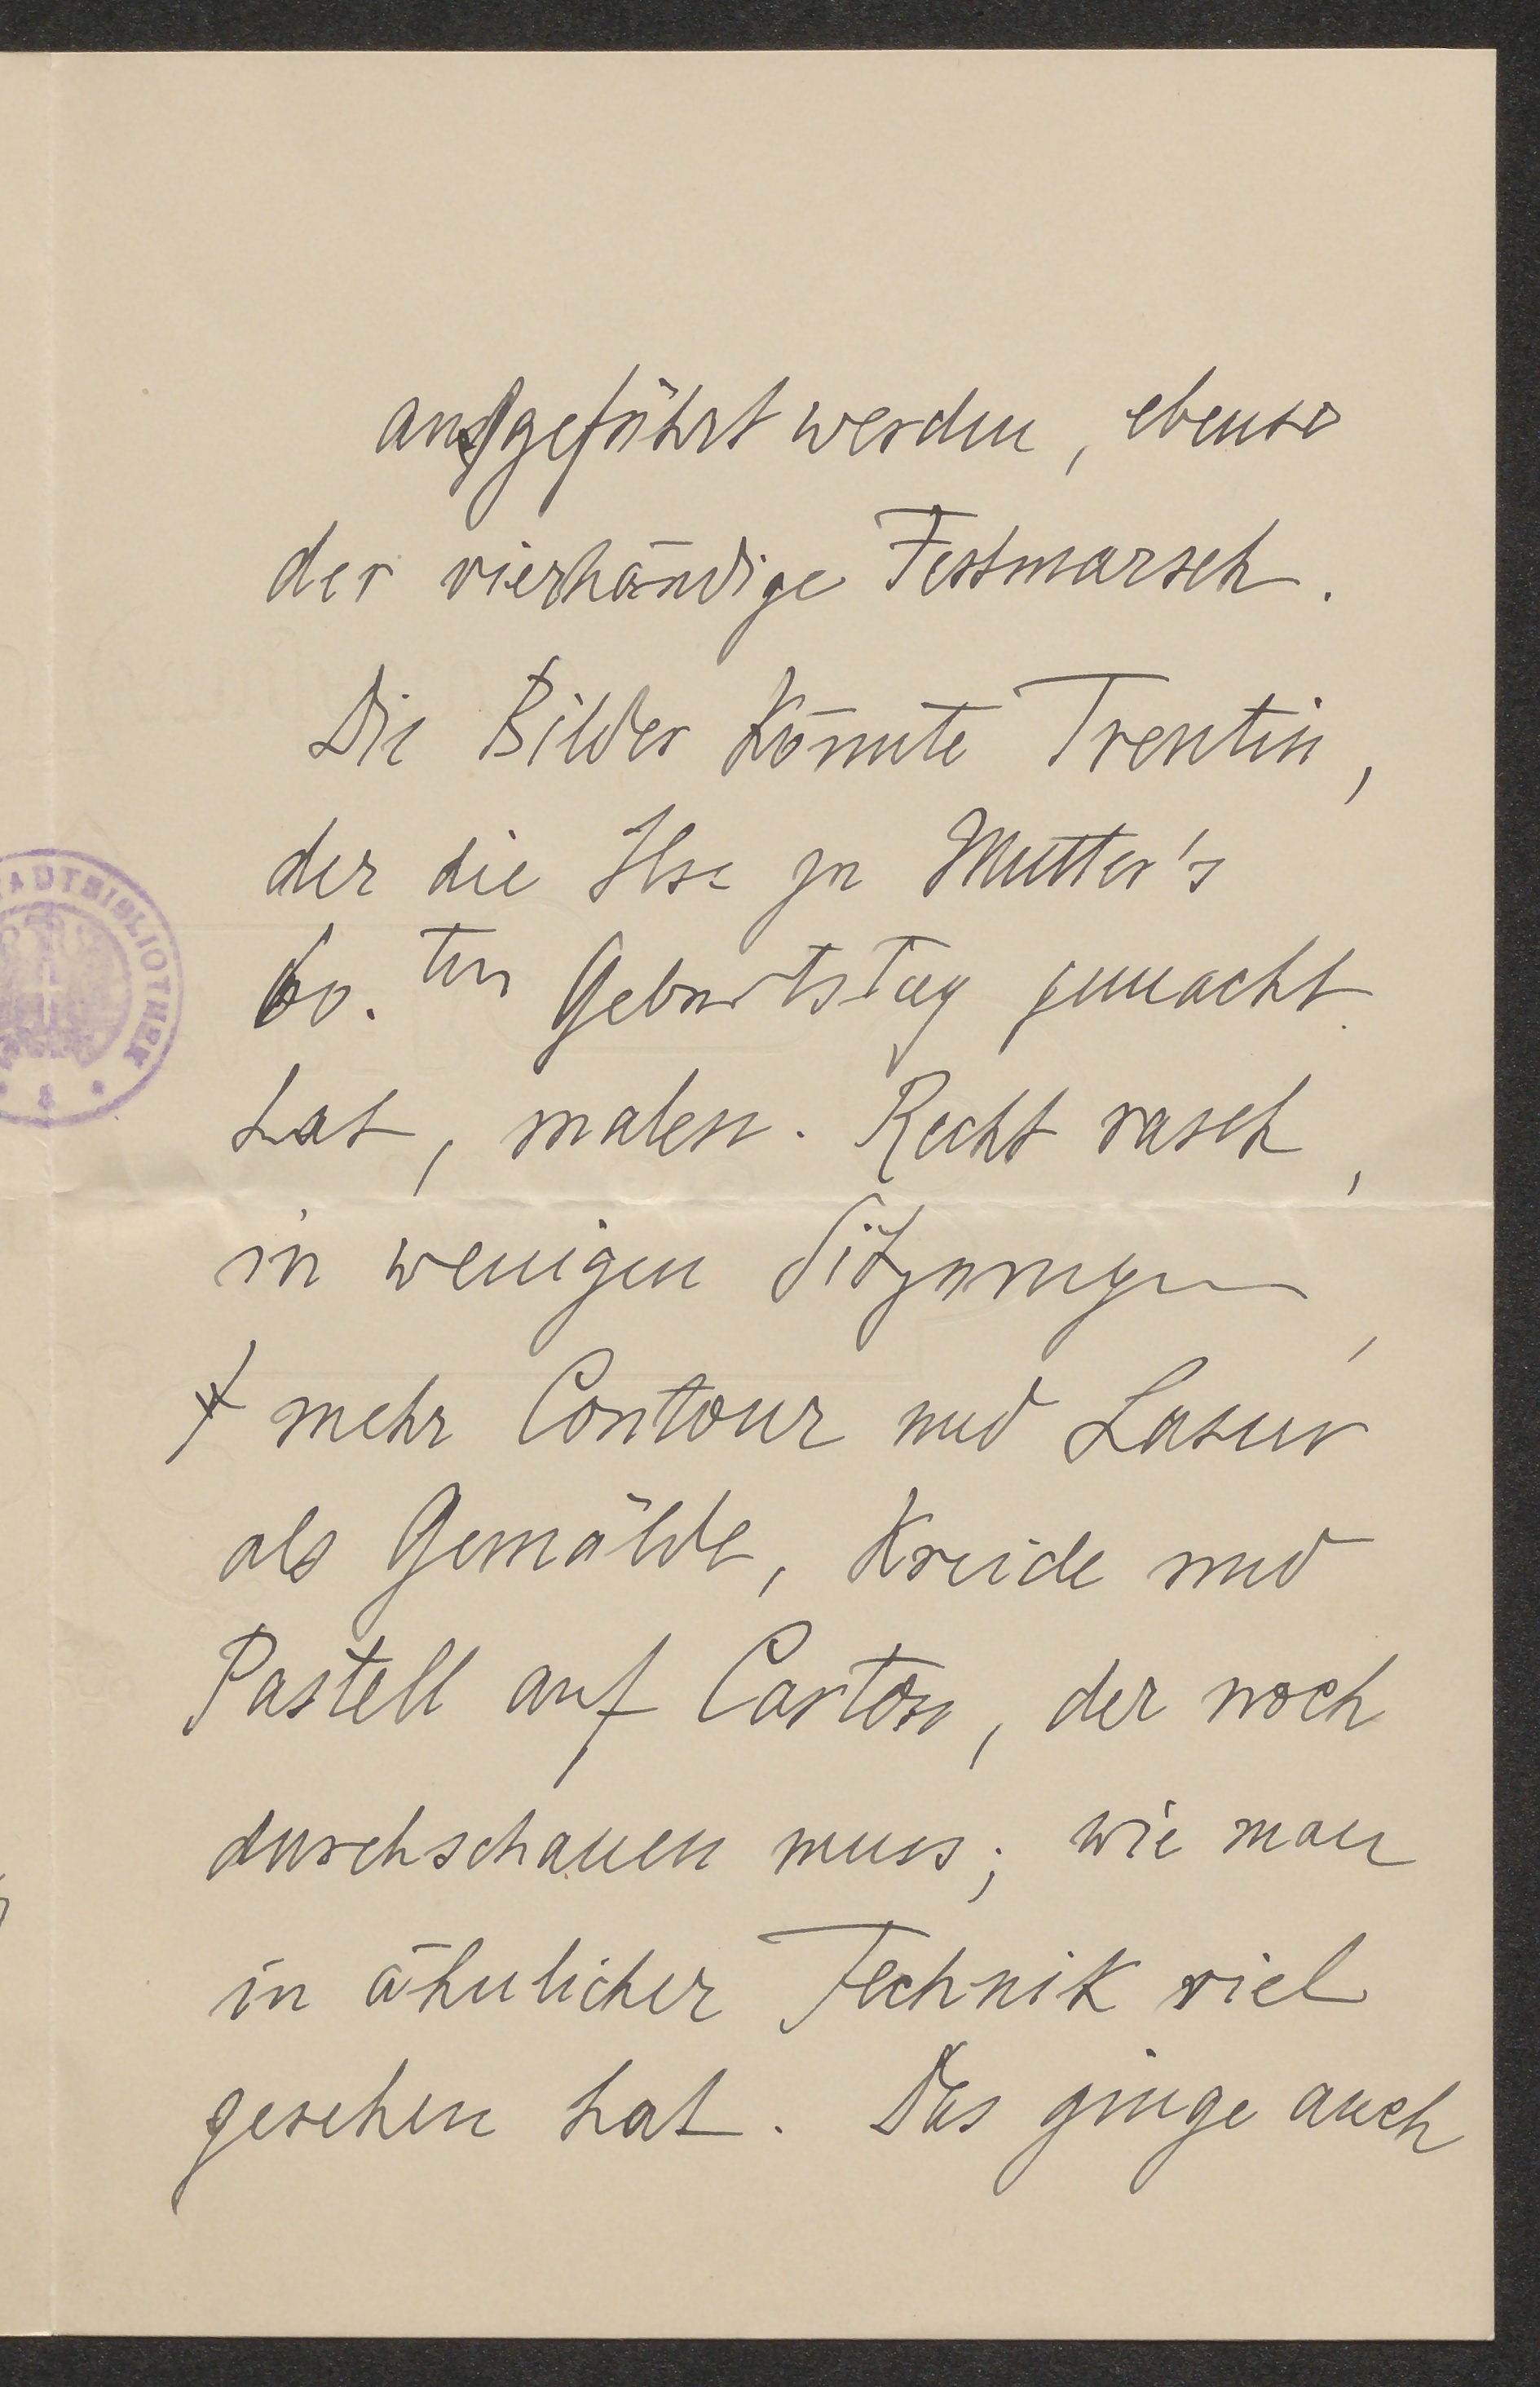 aufgeführt werden, ebenso
der vierhändige Festmarsch.
Die Bilder könnte Trentin,
der die Ilse zu Mutter's
60.ten Geburtstag gemacht
hat, malen. Recht rasch,
in wenigen Sitzungen,
mehr Contour und Lasur
als Gemälde, Kreide und
Pastell auf Carton, der noch
durchschauen muss; wie man
in ähnlicher Technik viel
gesehen hat. Das ginge auch
STADTBIBLIOTHEK